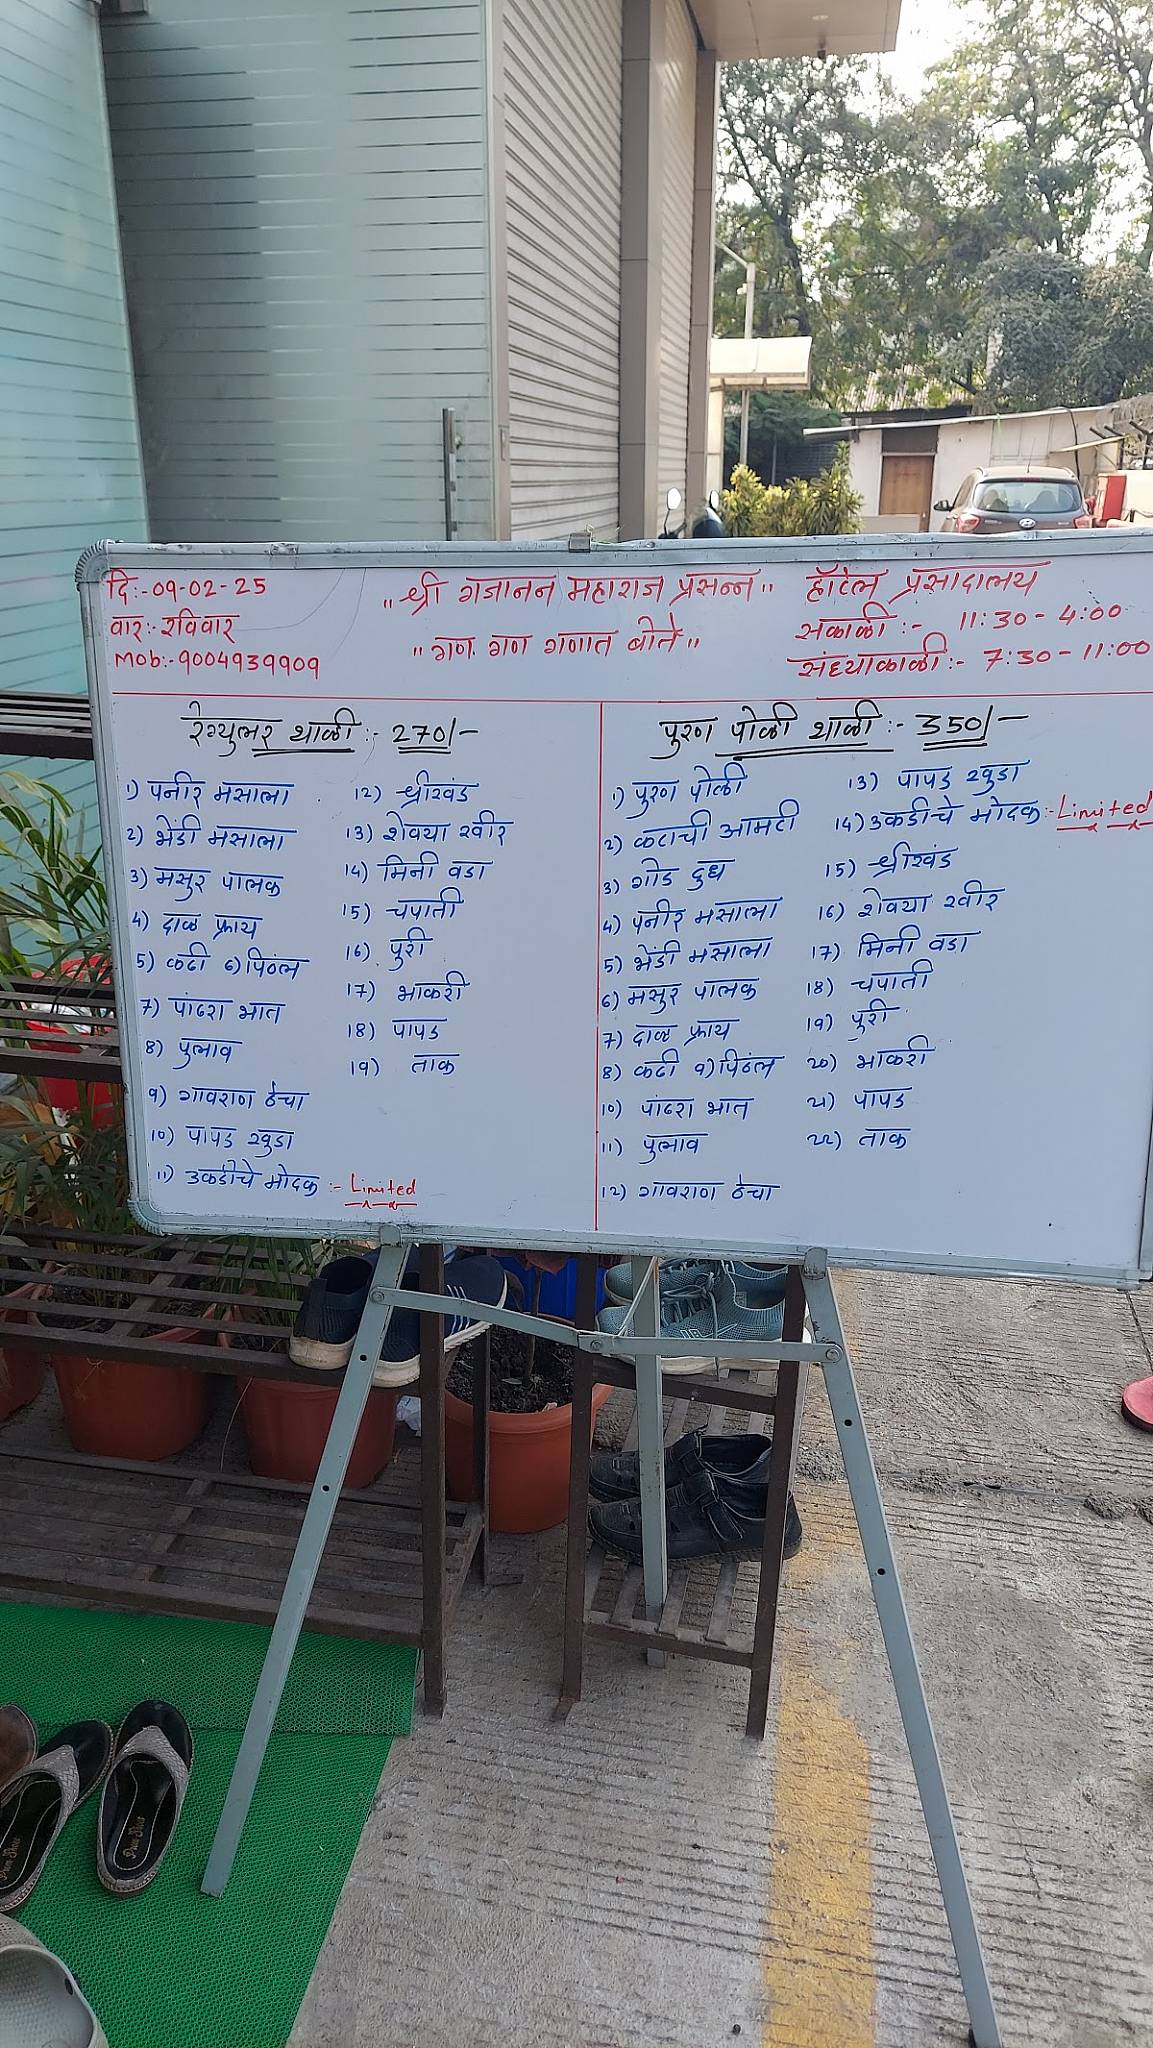 दि:-09-02-25
वार:- रविवार
Mob:-9004939909
"श्री गजानन महाराज प्रसन्न"
"गण गण गणात बोते"
हॉटेल प्रसादालय
सकाळी:- 11:30-4:00
संध्याकाळी:- 7:30-11:00
रेग्युलर थाळी:- 270/-
1) पनीर मसाला
2) भेंडी मसाला
3) मसुर पालक
4) दाळ फ्राय
5) कढी 6) पिठंल
7) पांढरा भात
8) पुलाव
9) गावराण ठेचा
10) पापड खुडा
11) उकडीचे मोदक :- Limited
12) श्रीखंड
13) शेवया खीर
14) मिनी वडा
15) चपाती
16) पुरी
17) भाकरी
18) पापड
19) ताक
पुरण पोळी थाळी:- 350/-
1) पुरण पोळी
2) कटाची आमटी
3) गोड दुध
4) पनीर मसाला
5) भेंडी मसाला
6) मसुर पालक
7) दाळ फ्राय
8) कढी 9) पिठंल
10) पांढरा भात
11) पुलाव
12) गावराण ठेचा
13) पापड खुडा
14) उकडीचे मोदक:- Limited
15) श्रीखंड
16) शेवया खीर
17) मिनी वडा
18) चपाती
19) पुरी
20) भाकरी
21) पापड
22) ताक